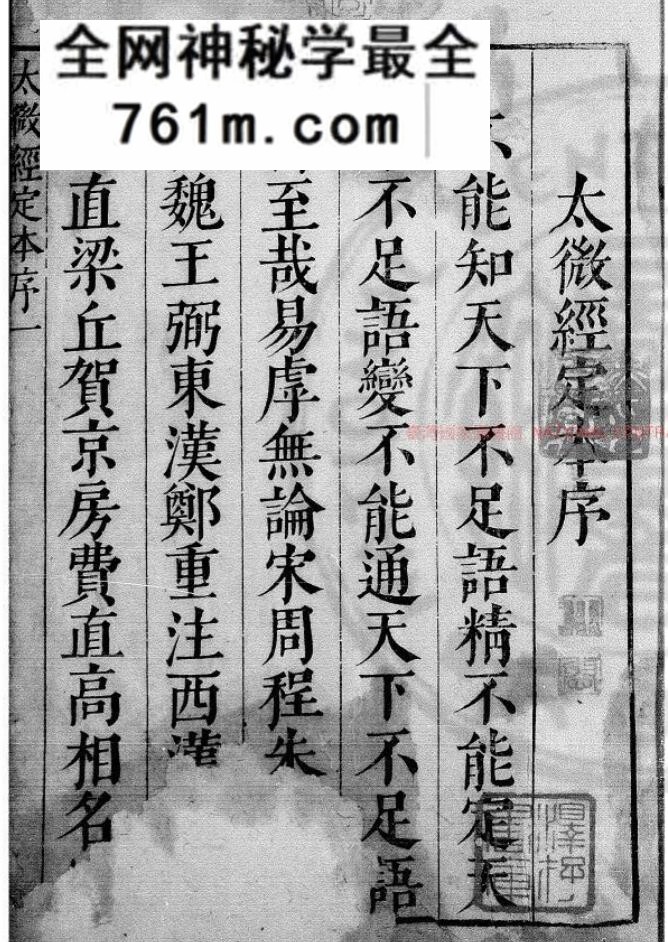 全网神秘学最全
761m.com
太微經定本序
不能知天下不足語精不能定天
不足語變不能通天下不足語
至哉易虖無論宋周程朱
魏王弼東漢鄭重注西漢
直梁丘賀京房費直高相名
太微經定本序一